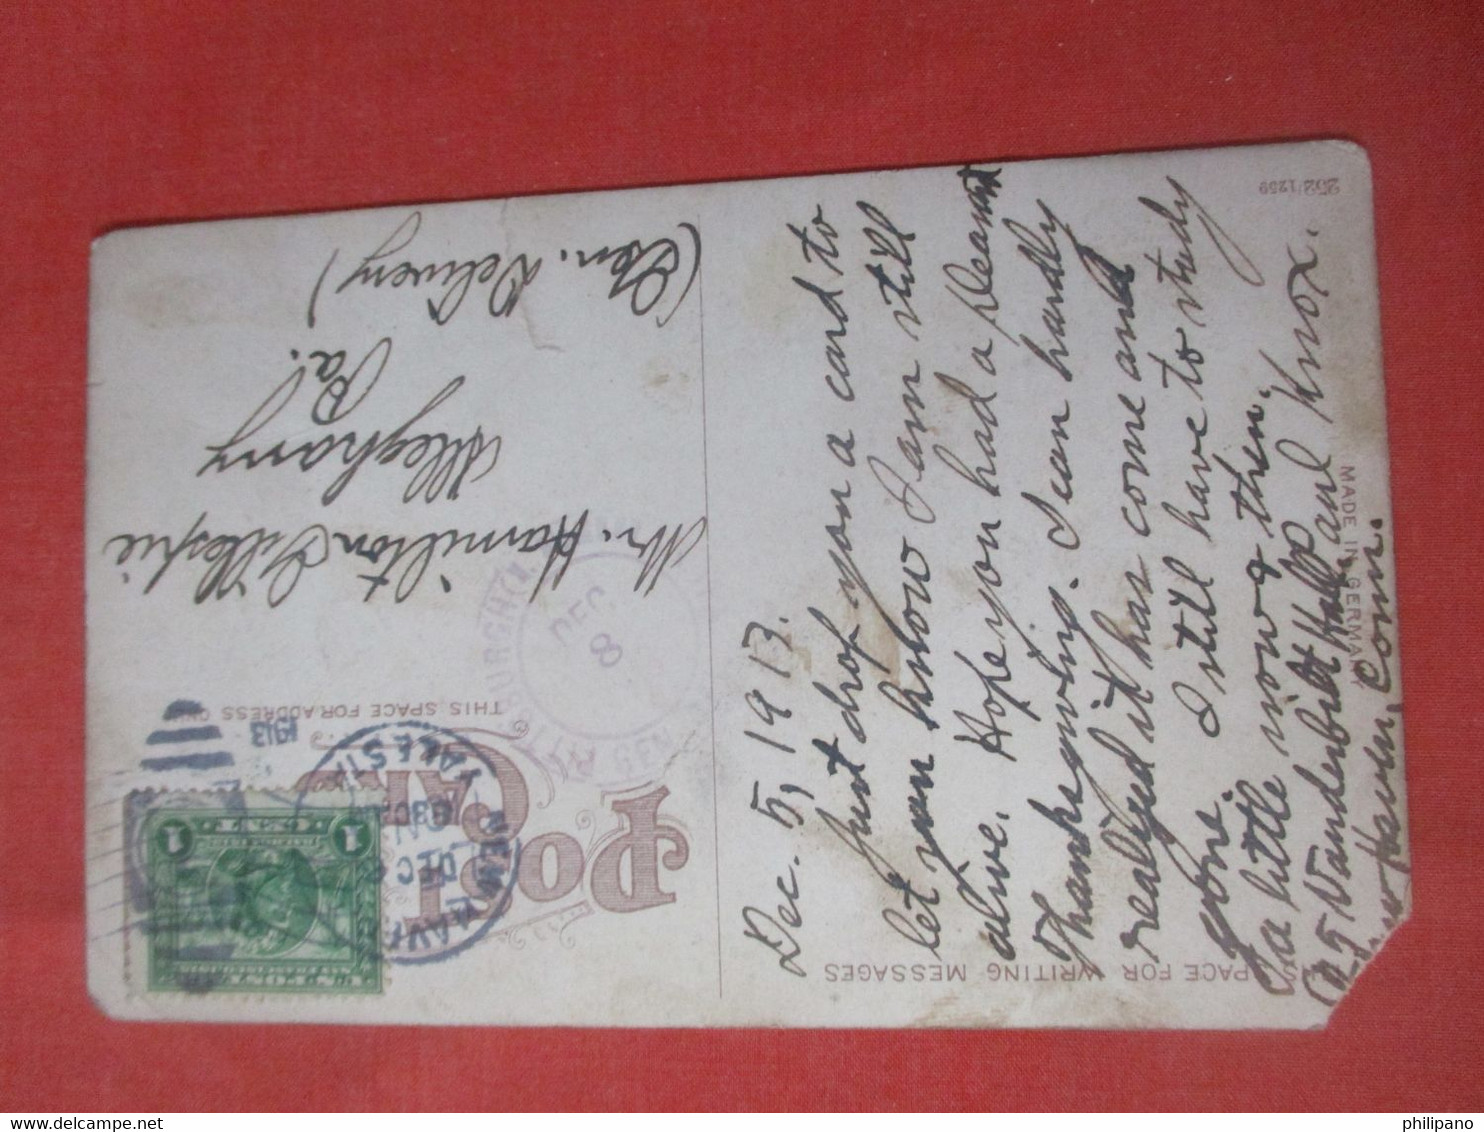 POST CARD
THIS SPACE FOR ADDRESS ONLY
SPACE FOR WRITING MESSAGES
MADE IN GERMANY
252/1259
NEW HAVEN
YALE STA.
DEC
1913
PITTSBURGH
DEC.
8
GEN
U.S. POSTAGE
SAN FRANCISCO
1 CENT 1
Dec. 5, 1913.
Just drop you a card to
let you know I am still
alive. Hope you had a pleasant
Thanksgiving. I can hardly
realized it has come and
gone. I still have to study
a little now & then.
Paul Knox.
Vanderbilt Hall
New Haven, Conn.
Mr. Hamilton Gillespie
Alleghany
Pa.
(Gen. Delivery)
philipano